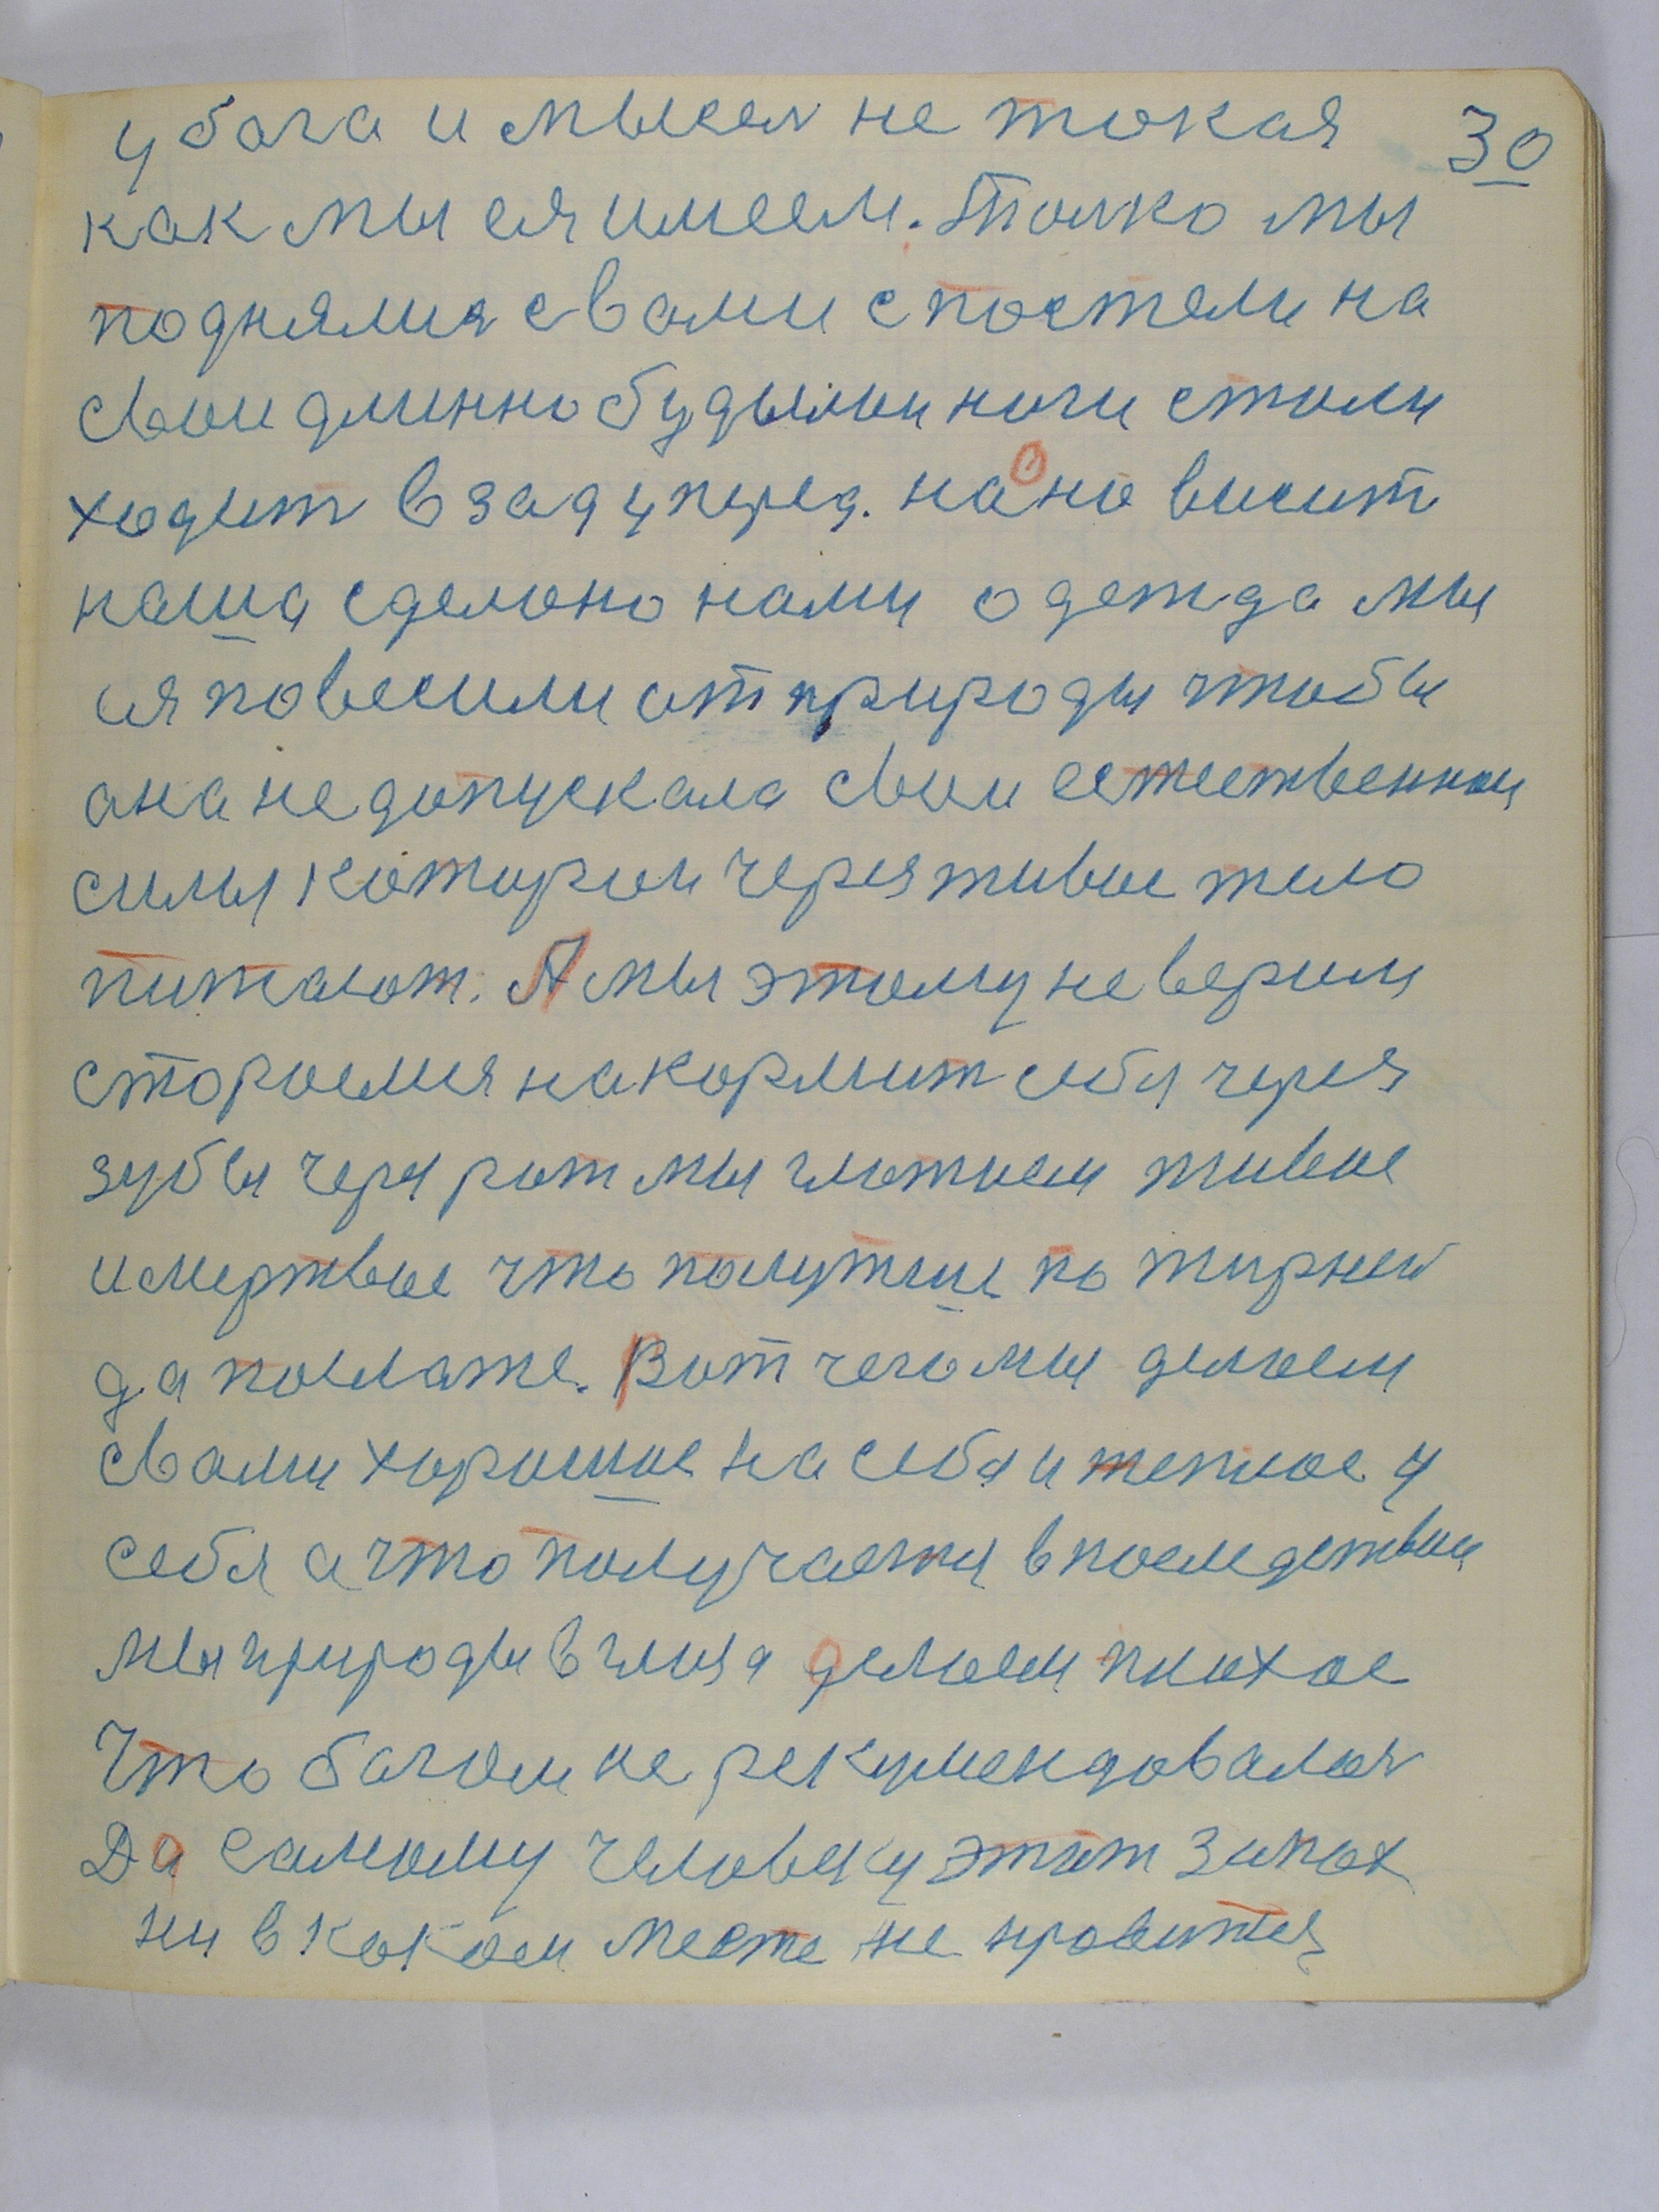 у бога и мысля не такая 30
как мы ея имеем. Толко мы
поднялися с вами с постели на
свои длинно будылыи ноги стали
ходит в зад у перед. на но висит
наша сделоно нами одежда мы
ея повесили от природы чтобы
ана не допускала свои естественаи
силы которои через живое тело
питают. А мы этому не верим
стороемся накормит себя через
зубы через рот мы глотаем живое
и мертвое что получше по жирней
да послаже. Вот чего мы делаем
с вами хорошое на себя и теплое у
себя а что получается в последствии
мы природы в глиза делаем плохое
Что богом не рекумендовалося
Да самому человеку этот запах
ни в каком месте не нровится